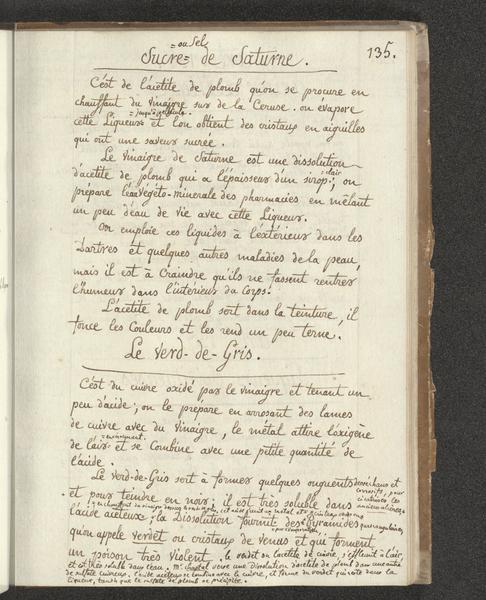 = ou Sel =
Sucre = de Saturne. 135.
C'est de l'acétite de plomb qu'on se procure en
chauffant du vinaigre sur de la Ceruse. on evapore
cette Liqueur et l'on obtient des cristaux en aiguilles
qui ont une saveur sucrée.
Le Vinaigre de Saturne est une dissolution
d'acetite de plomb qui a l'épaisseur d'un sirop clair; on
prépare l'eau végéto-minerale des pharmacies en mêlant
un peu d'eau de vie avec cette Liqueur.
On emploie ces liquides à l'éxtérieur dans les
Dartres et quelques autres maladies de la peau,
mais il est à Craindre qu'ils ne fassent rentrer
l'humeur dans l'intérieur du Corps.
L'acétite de plomb sert dans la teinture, il
fonce les Couleurs et les rend un peu terne.
Le Verd-de-Gris.
C'est du cuivre oxidé par le vinaigre et tenant un
peu d'acide; on le prépare en arrosant des lames
de cuivre avec du Vinaigre, le métal attire l'oxigène
de l'air et se Combine avec une petite quantité de
l'acide.
Le Verd-de-Gris sert à former quelques onguents
et pour teindre en noir; il est très soluble dans
l'acide aceteux; la Dissolution fournit des pyramides
qu'on appele verdet ou cristaux de venus et qui forment
un poison très violent. le verdet ou l'acétite de cuivre, s'éffleurit à l'air,
et est très soluble dans l'eau. verse une Dissolution d'acetite de plomb dans une autre
de sulfate cuivreux, l'acide aceteux se combine avec le cuivre, et forme du verdet qui reste dans la
Liqueur, tandis que le sulfate de plomb se précipite.